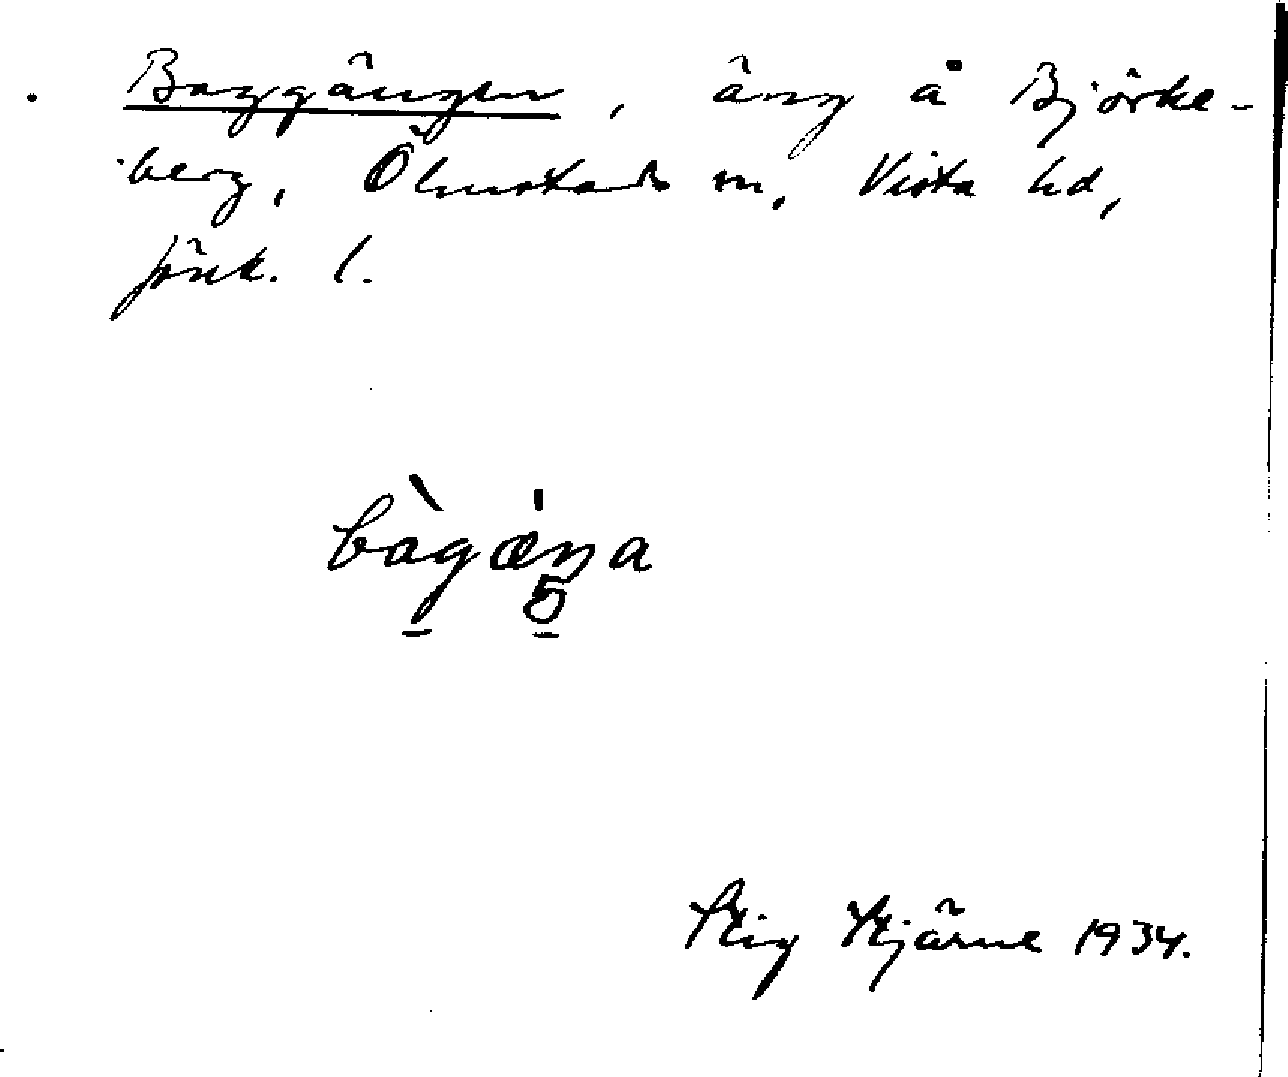 Baggängen, äng å Björke-
berg, Ölmstads sn, Vista hd,
Jönk. l.
bàgæŋa
Stig Stjärne 1934.